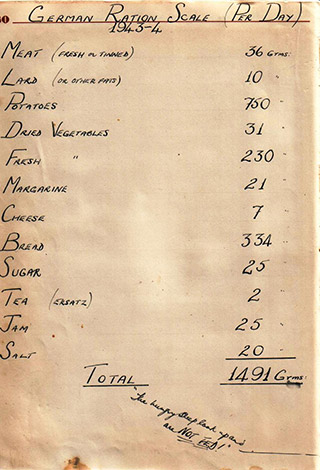 GERMAN RATION SCALE (PER DAY)
1943-4
MEAT (FRESH OR TINNED) 36 GMS.
LARD (OR OTHER FATS) 10 "
POTATOES 750 "
DRIED VEGETABLES 31 "
FRESH " 230 "
MARGARINE 21 "
CHEESE 7 "
BREAD 334 "
SUGAR 25 "
TEA (ERSATZ) 2 "
JAM 25 "
SALT 20 "
TOTAL 1491 GMS.
"The hungry sheep look up and
are NOT FED!"